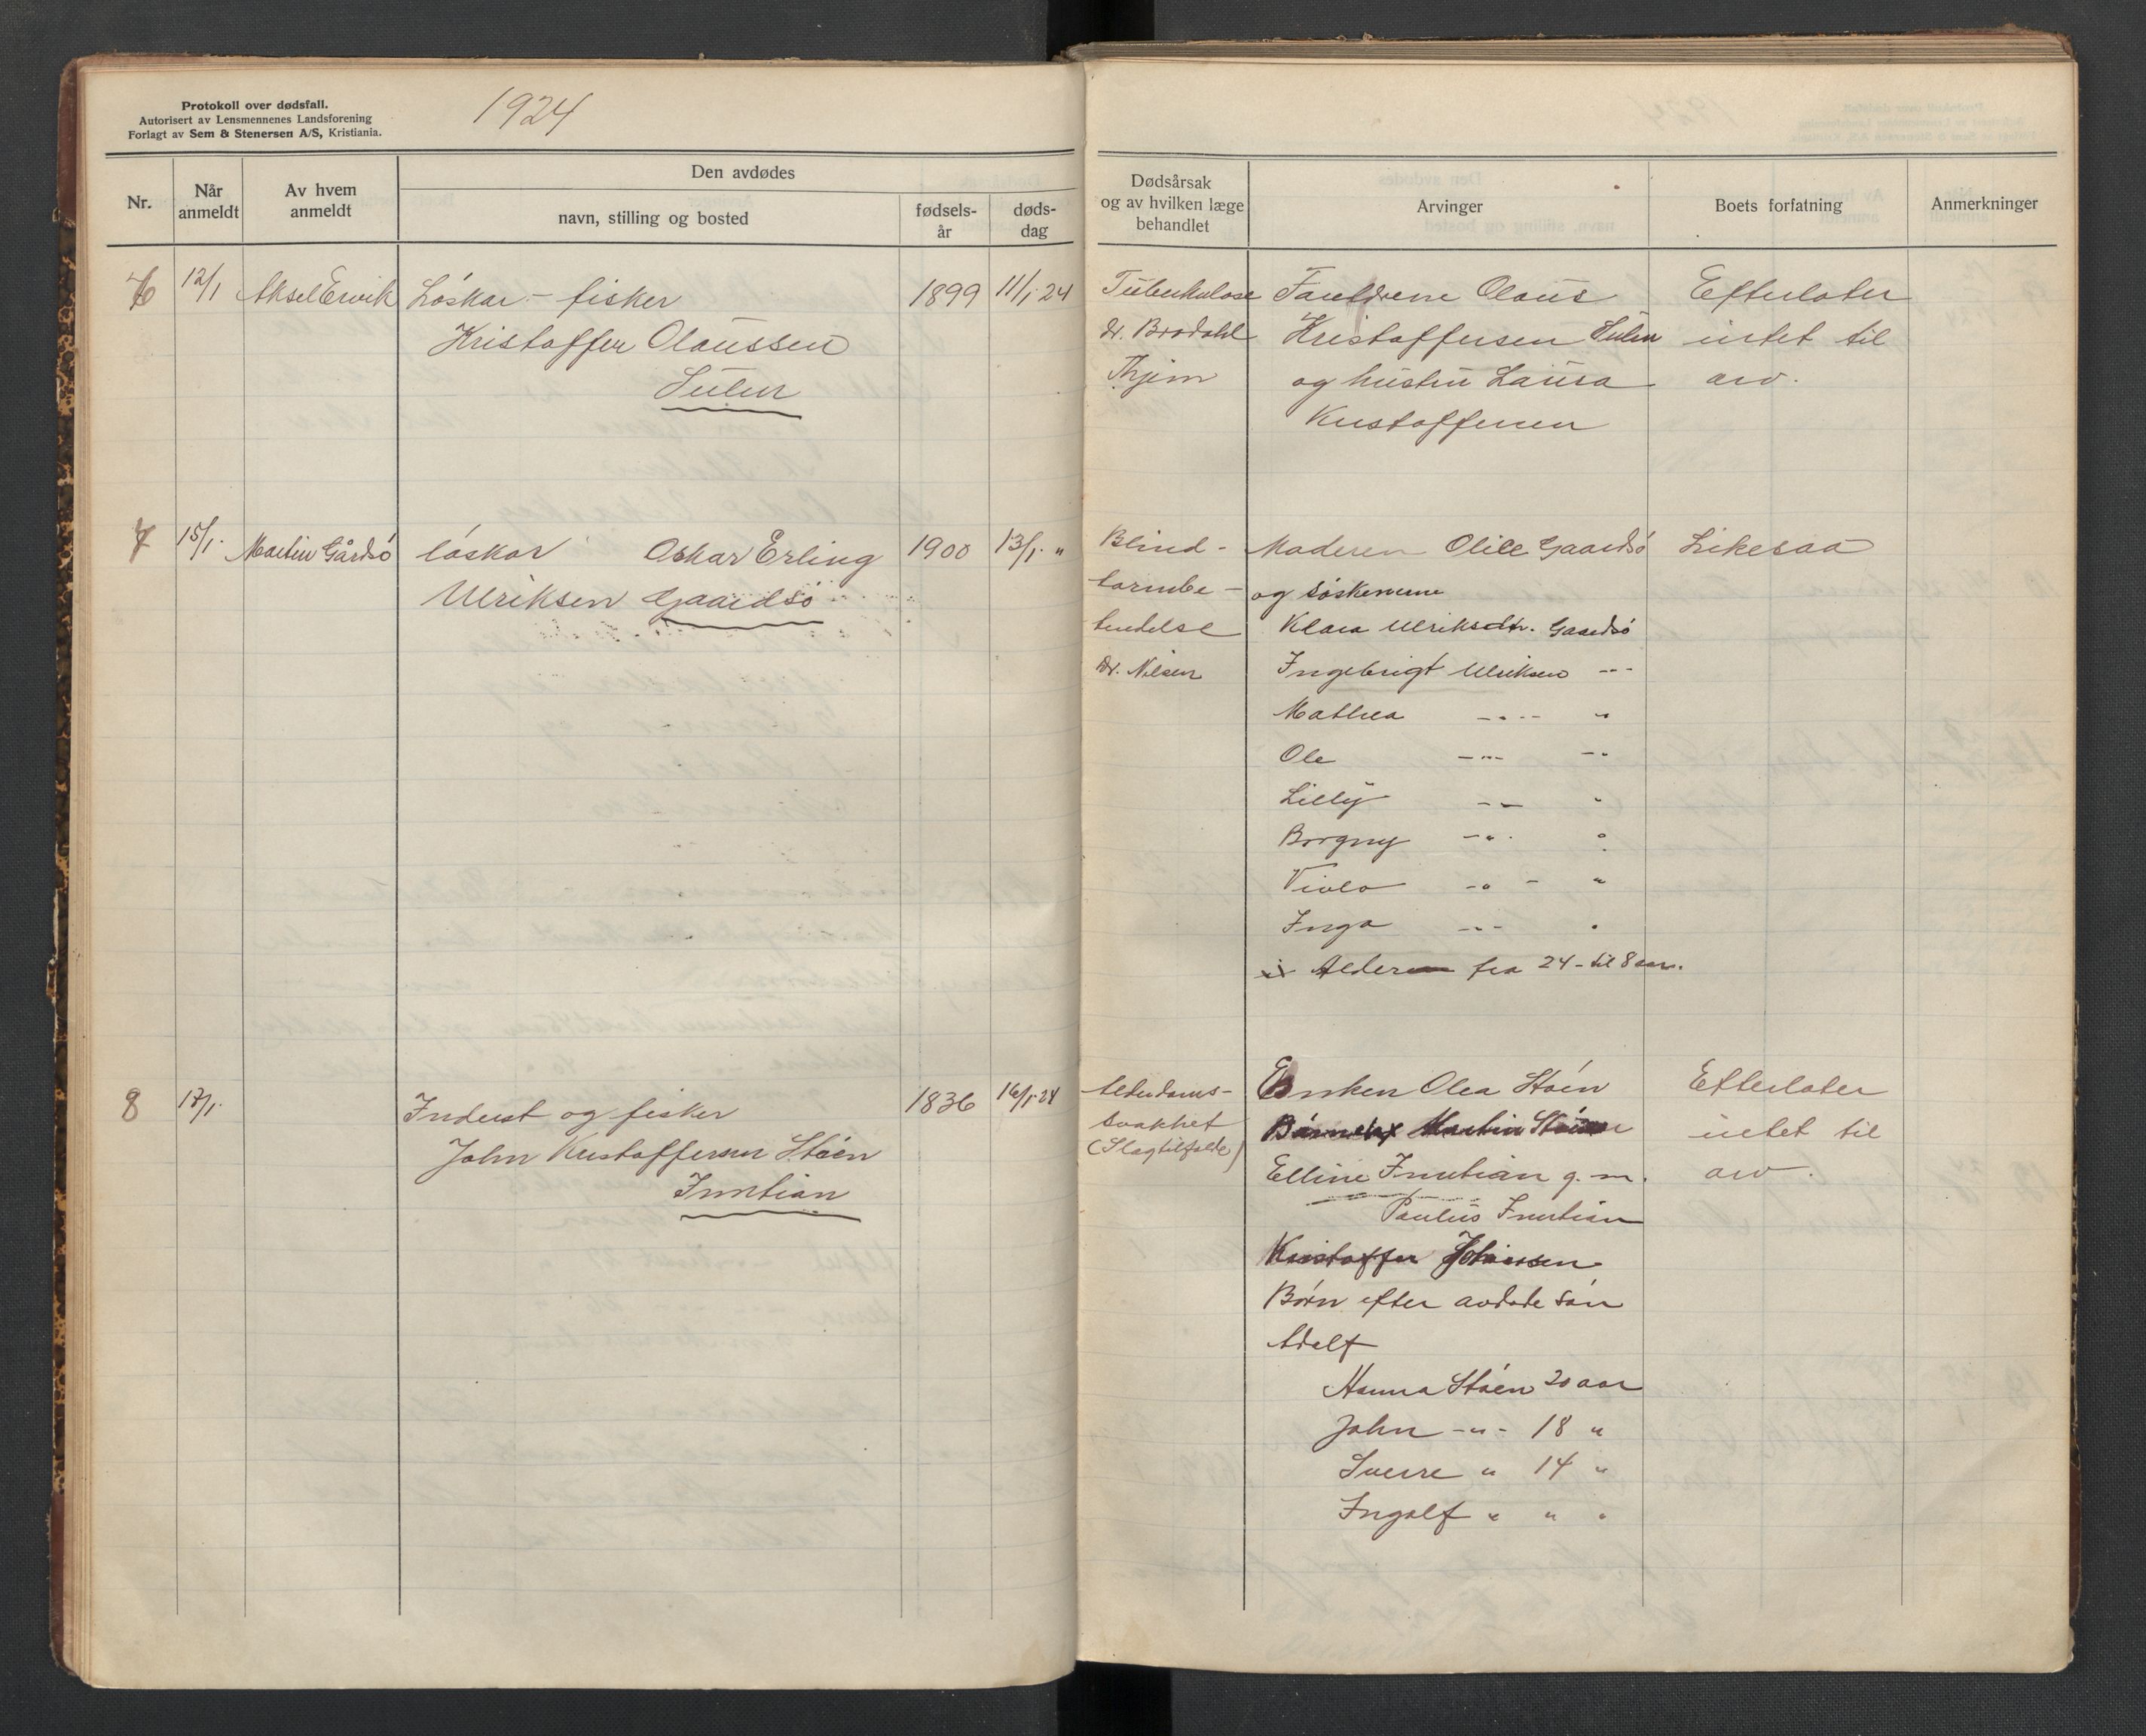 Protokoll over dødsfall.
Autorisert av Lensmennenes Landsforening
Forlagt av Sem & Stenersen A/S, Kristiania.
1924
Nr.
Når anmeldt
Av hvem anmeldt
Den avdødes
navn, stilling og bosted
fødsels-år
døds-dag
Dødsårsak og av hvilken læge behandlet
Arvinger
Boets forfatning
Anmerkninger
6 12/1 Aksel Ervik Løskar - fisker 1899 11/1-24
Kristoffer Olaussen
Sulen
Tuberkulose
dr. Brodahl
Foreldrene Olaus
Kristoffersen Sulen
og hustru Laura
Kristoffersen
Efterlater
intet til
arv.
7 15/1. Martin Gårdsø løskar Oskar Erling 1900 13/1. "
Ulriksen Gaardsø
Blind-
tarmbe-
tendelse
dr. Nilsen
Moderen Olile Gaardsø
og søskenene
Klara Ulriksdtr. Gaardsø
Ingebrigt Ulriksen -"-
Mathea -"- "
Ole -"- -"
Lilly -"- "
Borgny -"- "
Viola -"- "
Inga -"- "
i Alderen fra 24 - til 8 aar.
Likesaa
8 17/1. Inderst og fisker 1836 16/1-24
John Kristoffersen Støen
Inntian
Alderdoms-
svakhet
(Slagtilfælde)
Enken Olea Støen
Martin
Elline Inntian g. m.
Paulus Inntian
Kristoffer Johnssen
Børn efter avdøde søn
Adolf
Hanna Støen 20 aar
John -"- 18 "
Sverre " 14 "
Ingolf " " "
Efterlater
intet til
arv.